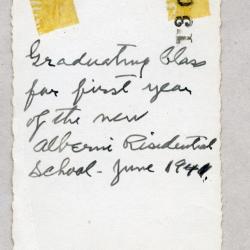 1801
Graduating Class
for first year
of the new
Alberni Risidential
School - June 1941.